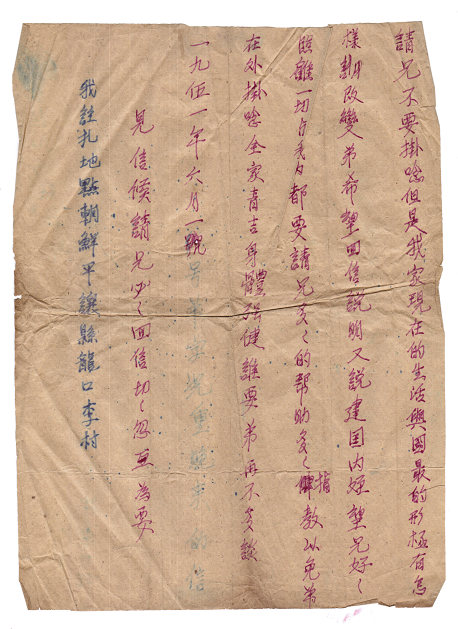 請兄不要掛唸但是我家現在的生活與國最的形極有怎
樣調改變弟希望回信說明又說建国內姪望兄好〻
照雖一切自重都要請兄多〻的帮助多〻指教以免弟
在外掛唸全家青吉身體强健誰要弟再不多談
一九伍一年六月一號
見信候請兄少〻回信切〻忽至為要
我註扎地點朝鮮平鎮縣龍口李村